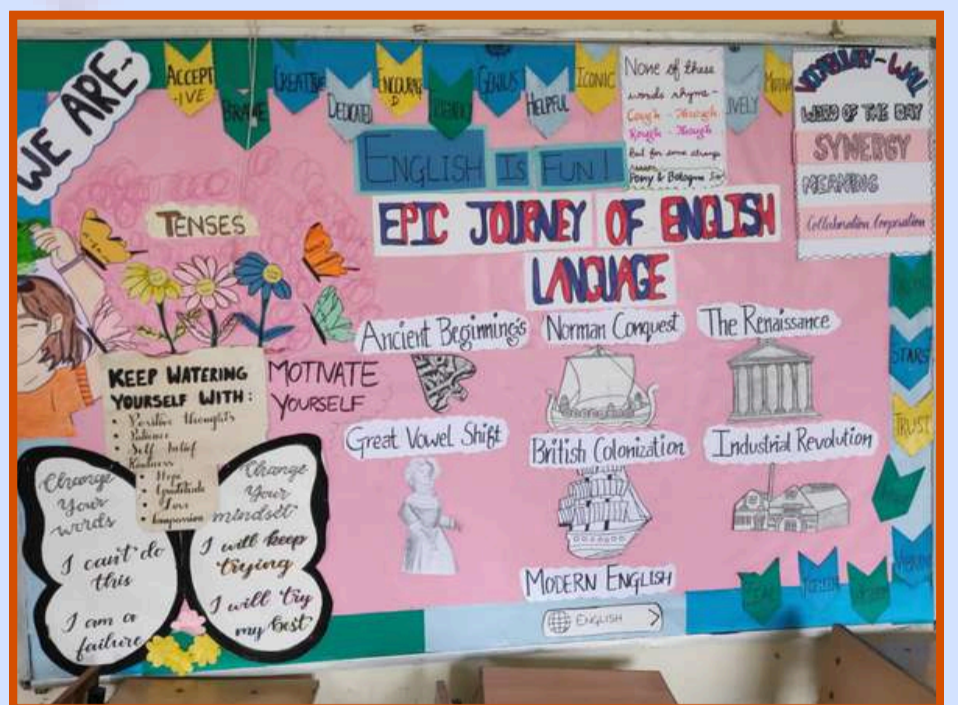 WE ARE-
ACCEPT
-IVE
BRAVE
CREATIVE
DEDICATED
ENCOURAG
D
FRIENDLY
GENIUS
HELPFUL
ICONIC
None of these
words rhyme-
Cough - Through
Rough - Though
but for some strange
reason
Pony & Bologna
LIVELY
VOCABULARY-WALL
WORD OF THE DAY
SYNERGY
MEANING
Collaboration Cooperation
ENGLISH IS FUN!
EPIC JOURNEY OF ENGLISH
LANGUAGE
TENSES
Ancient Beginning's
Norman Conquest
The Renaissance
Great Vowel Shift
British Colonization
Industrial Revolution
MODERN ENGLISH
ENGLISH >
MOTIVATE
YOURSELF
KEEP WATERING
YOURSELF WITH:
• Positive thoughts
• Patience
• Self belief
• Kindness
• Hope
• Gratitude
• Love
• Compassion
Change
Your
words
I can't do
this
I am a
failure
Change
Your
mindset
I will keep
trying
I will try
my best
STARS
TRUST